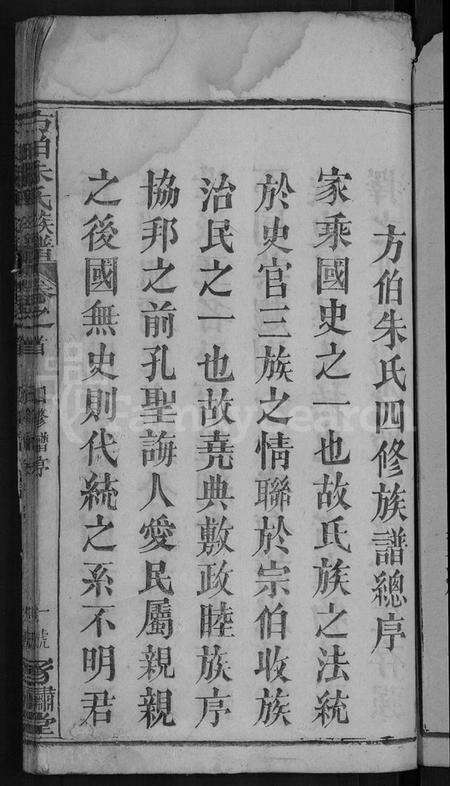 方伯朱氏四修族譜總序
家乘國史之一也故氏族之法統
於史官三族之情聯於宗伯收族
治民之一也故堯典敷政睦族序
協邦之前孔聖誨人愛民屬親親
之後國無史則代統之系不明君
方伯朱氏族譜 卷之首 四修譜序
FamilySearch